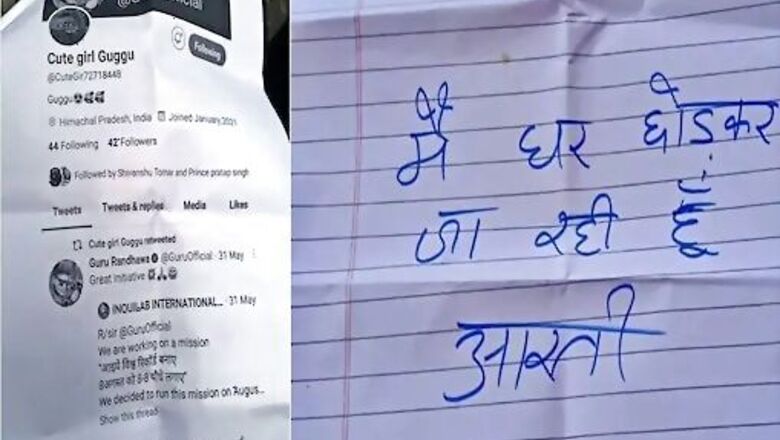 Official
Following
Cute girl Guggu
@CuteGirl72718448
Guggu
Himachal Pradesh, India Joined January 2021
44 Following 42 Followers
Followed by Shivanshu Tomar and Prince pratap singh
Tweets Tweets & replies Media Likes
Cute girl Guggu retweeted
Guru Randhawa @GuruOfficial · 31 May
Great Initiative
INQUILAB INTERNATIONAL... · 31 May
R/sir @GuruOfficial
We are working on a mission
"आइये विश्व रिकॉर्ड बनाए
8अगस्त को 8-8 पौधे लगाए"
We decided to run this mission on "Augus...
Show this thread
मैं घर छोड़कर
जा रही हूँ
आरती